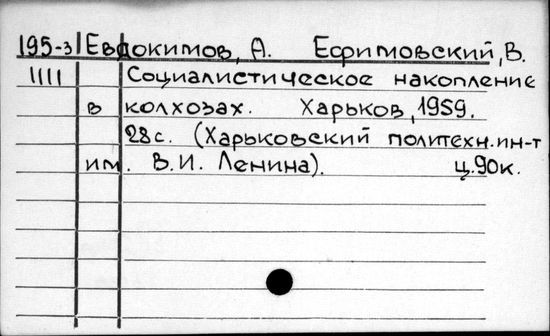 195-3 Евдокимов, А. Ефимовский, В.
1111 Социалистическое накопление
в колхозах. Харьков, 1959.
28с. (Харьковский политехн. ин-т
им. В.И. Ленина). ц.90к.